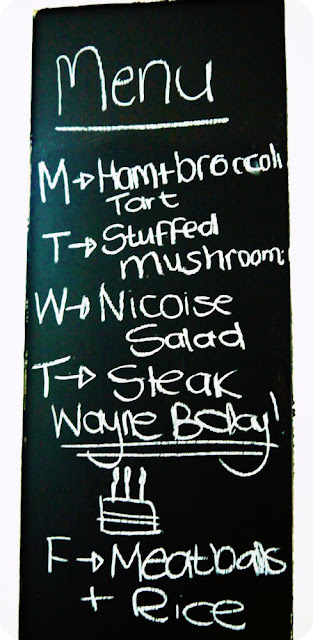 Menu
M→Ham+broccoli
Tart
T→Stuffed
mushroom
W→Nicoise
Salad
T→Steak
Wayne Bday!
F→Meatballs
+ Rice